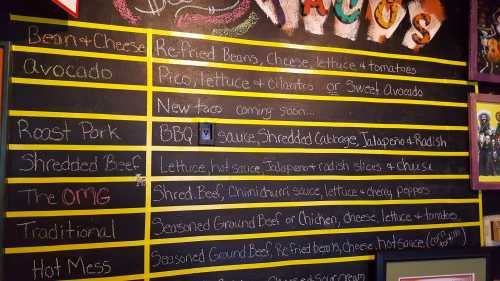 TACOS
Bean & Cheese Re-Fried Beans, Cheese, lettuce & tomatoes
Avocado Pico, lettuce & cilantro or Sweet Avocado
New taco coming soon...
Roast Pork BBQ sauce, Shredded Cabbage, Jalapeno & Radish
Shredded Beef Lettuce, hot sauce, Jalapeno & radish slices & cheese
The OMG Shred. Beef, Chimichurri sauce, lettuce & cherry peppers
Traditional Seasoned Ground Beef or Chicken, cheese, lettuce & tomatoes
Hot Mess Seasoned Ground Beef, Refried beans, cheese, hot sauce,
Cheese & Sour cream